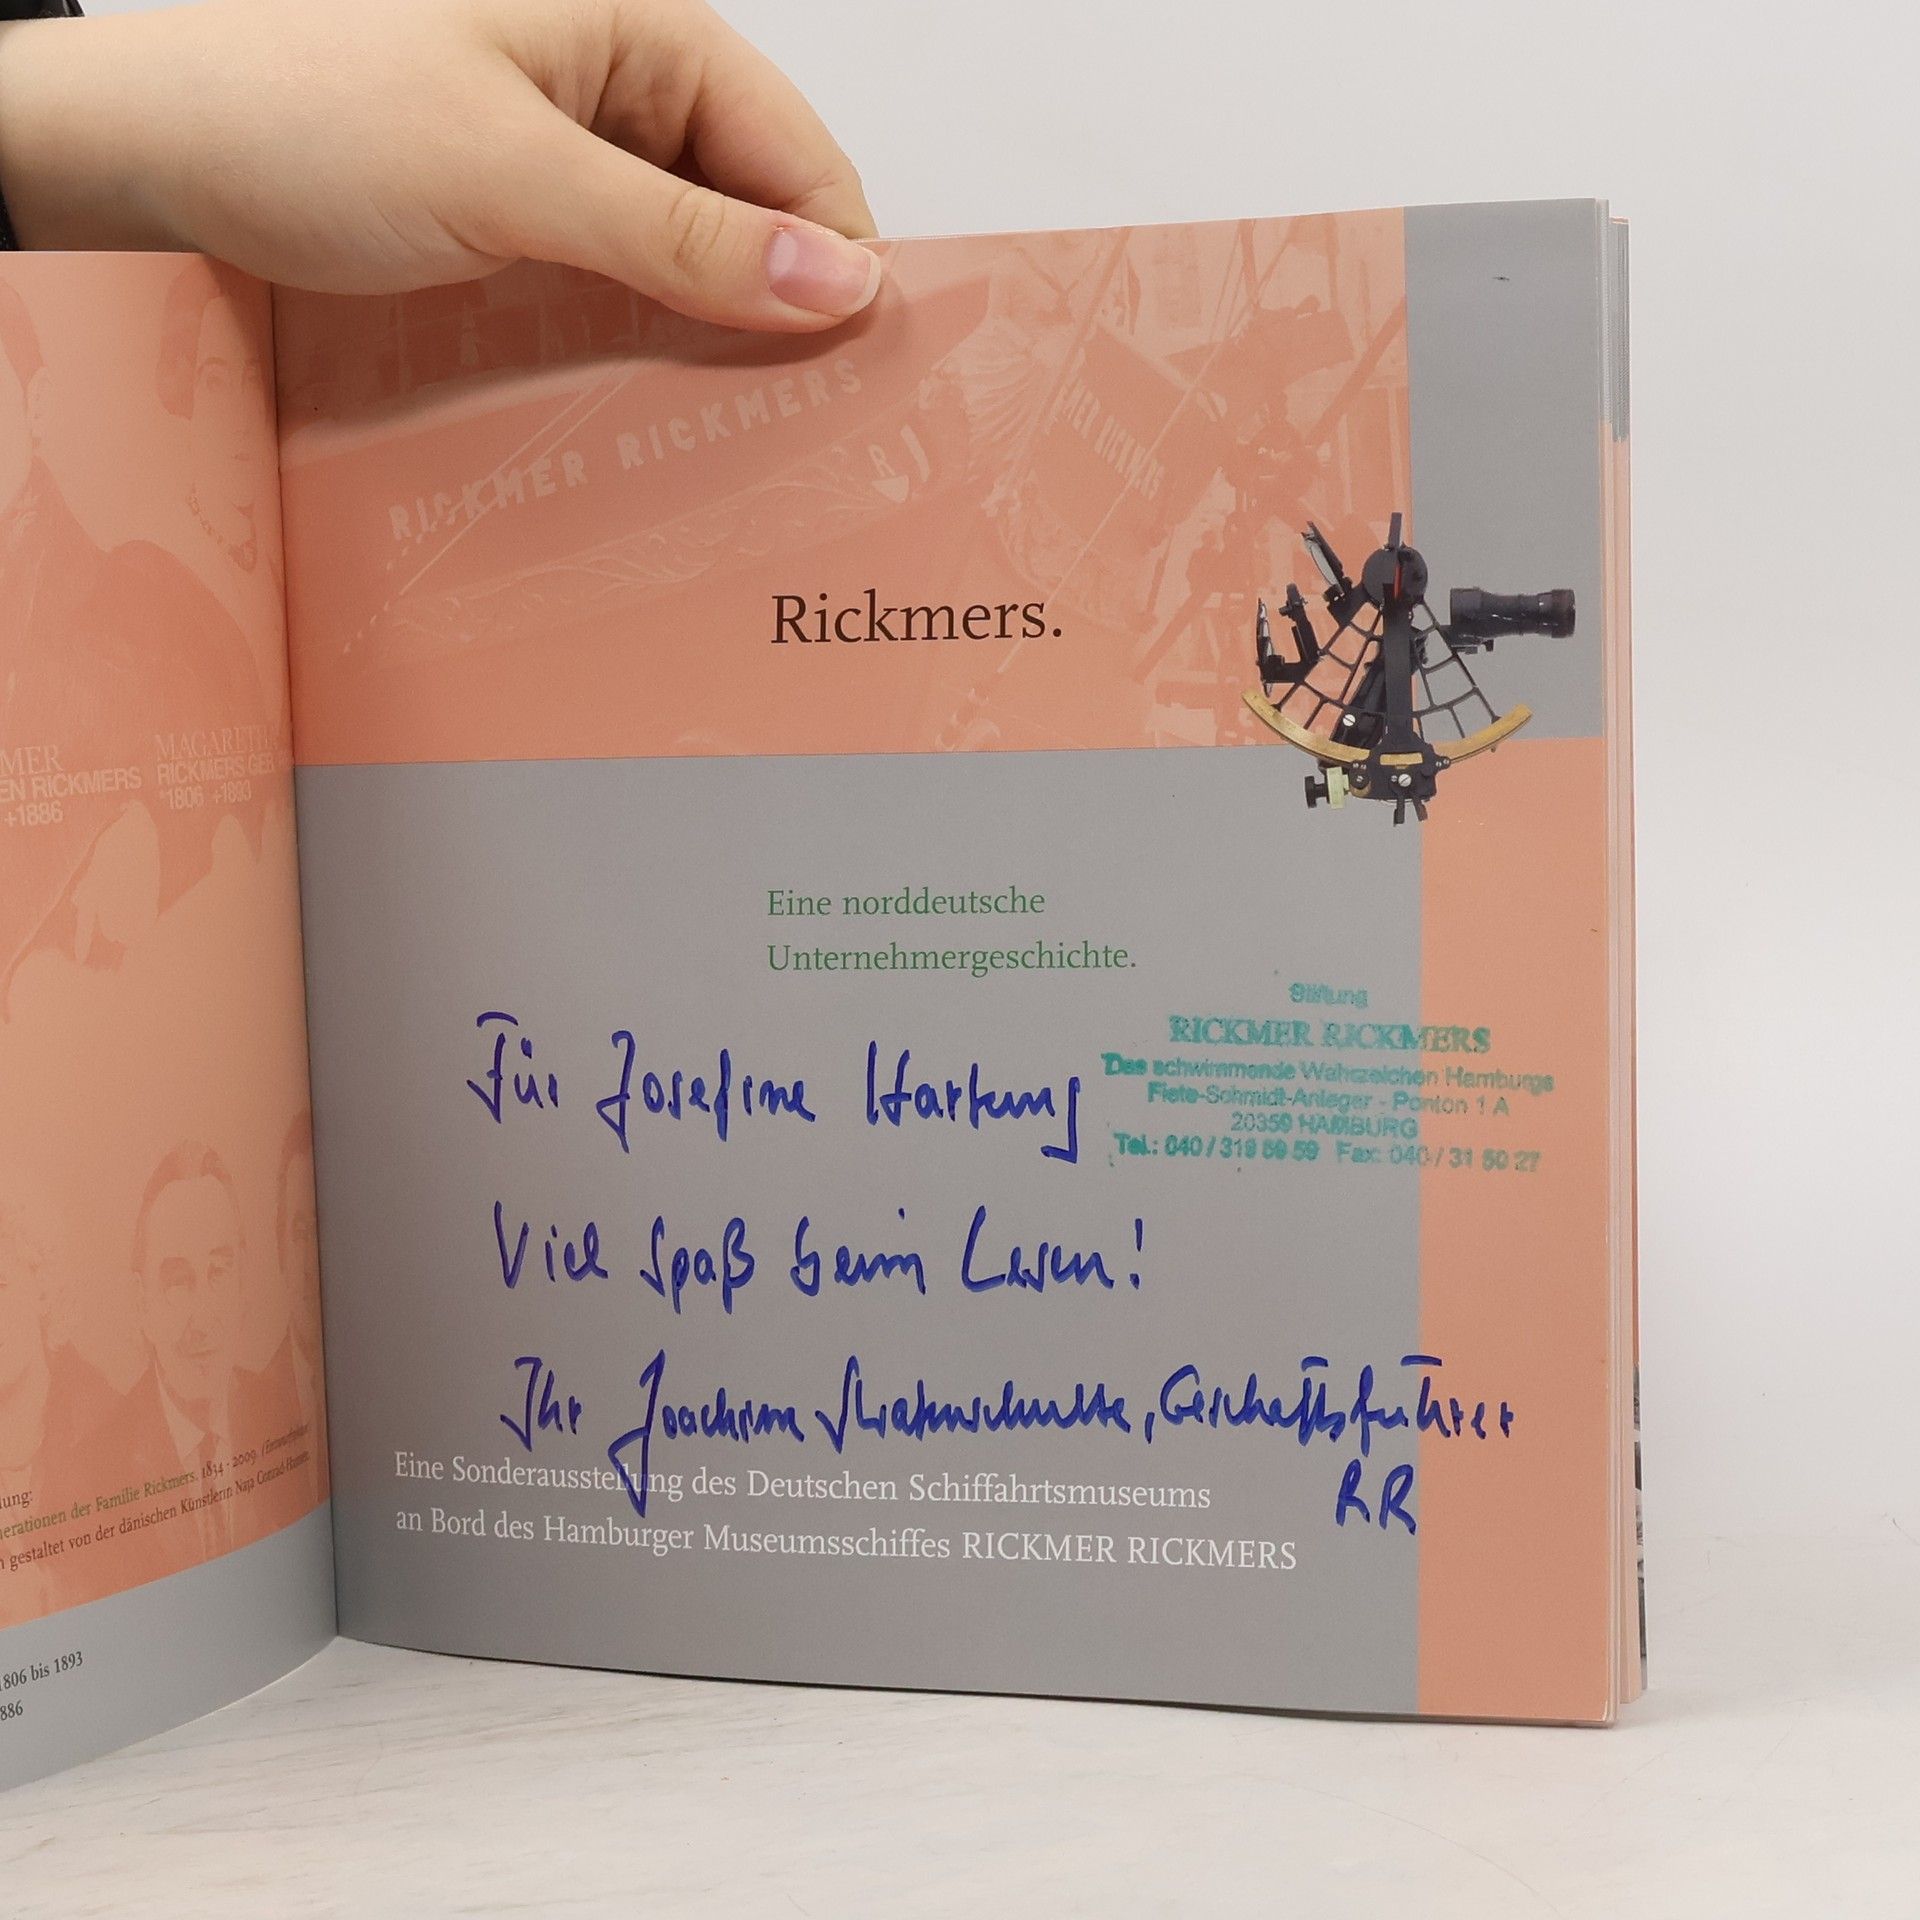 RICKMER RICKMERS
MER RICKMERS
Rickmers.
Eine norddeutsche
Unternehmergeschichte.
Stiftung
RICKMER RICKMERS
Das schwimmende Wahrzeichen Hamburgs
Fiete-Schmidt-Anleger - Ponton 1 A
20359 HAMBURG
Tel.: 040 / 319 59 59 Fax: 040 / 31 50 27
Für Josefine Hartung
Viel Spaß beim Lesen!
Ihr Joachim Stratenschulte, Geschäftsführer
RR
Eine Sonderausstellung des Deutschen Schiffahrtsmuseums
an Bord des Hamburger Museumsschiffes RICKMER RICKMERS
MER
EN RICKMERS
+1886
MAGARETHA
RICKMERS GEB
*1806 +1893
lung:
nerationen der Familie Rickmers, 1834 - 2009.
n gestaltet von der dänischen Künstlerin Naja Conrad-Hansen.
1806 bis 1893
886